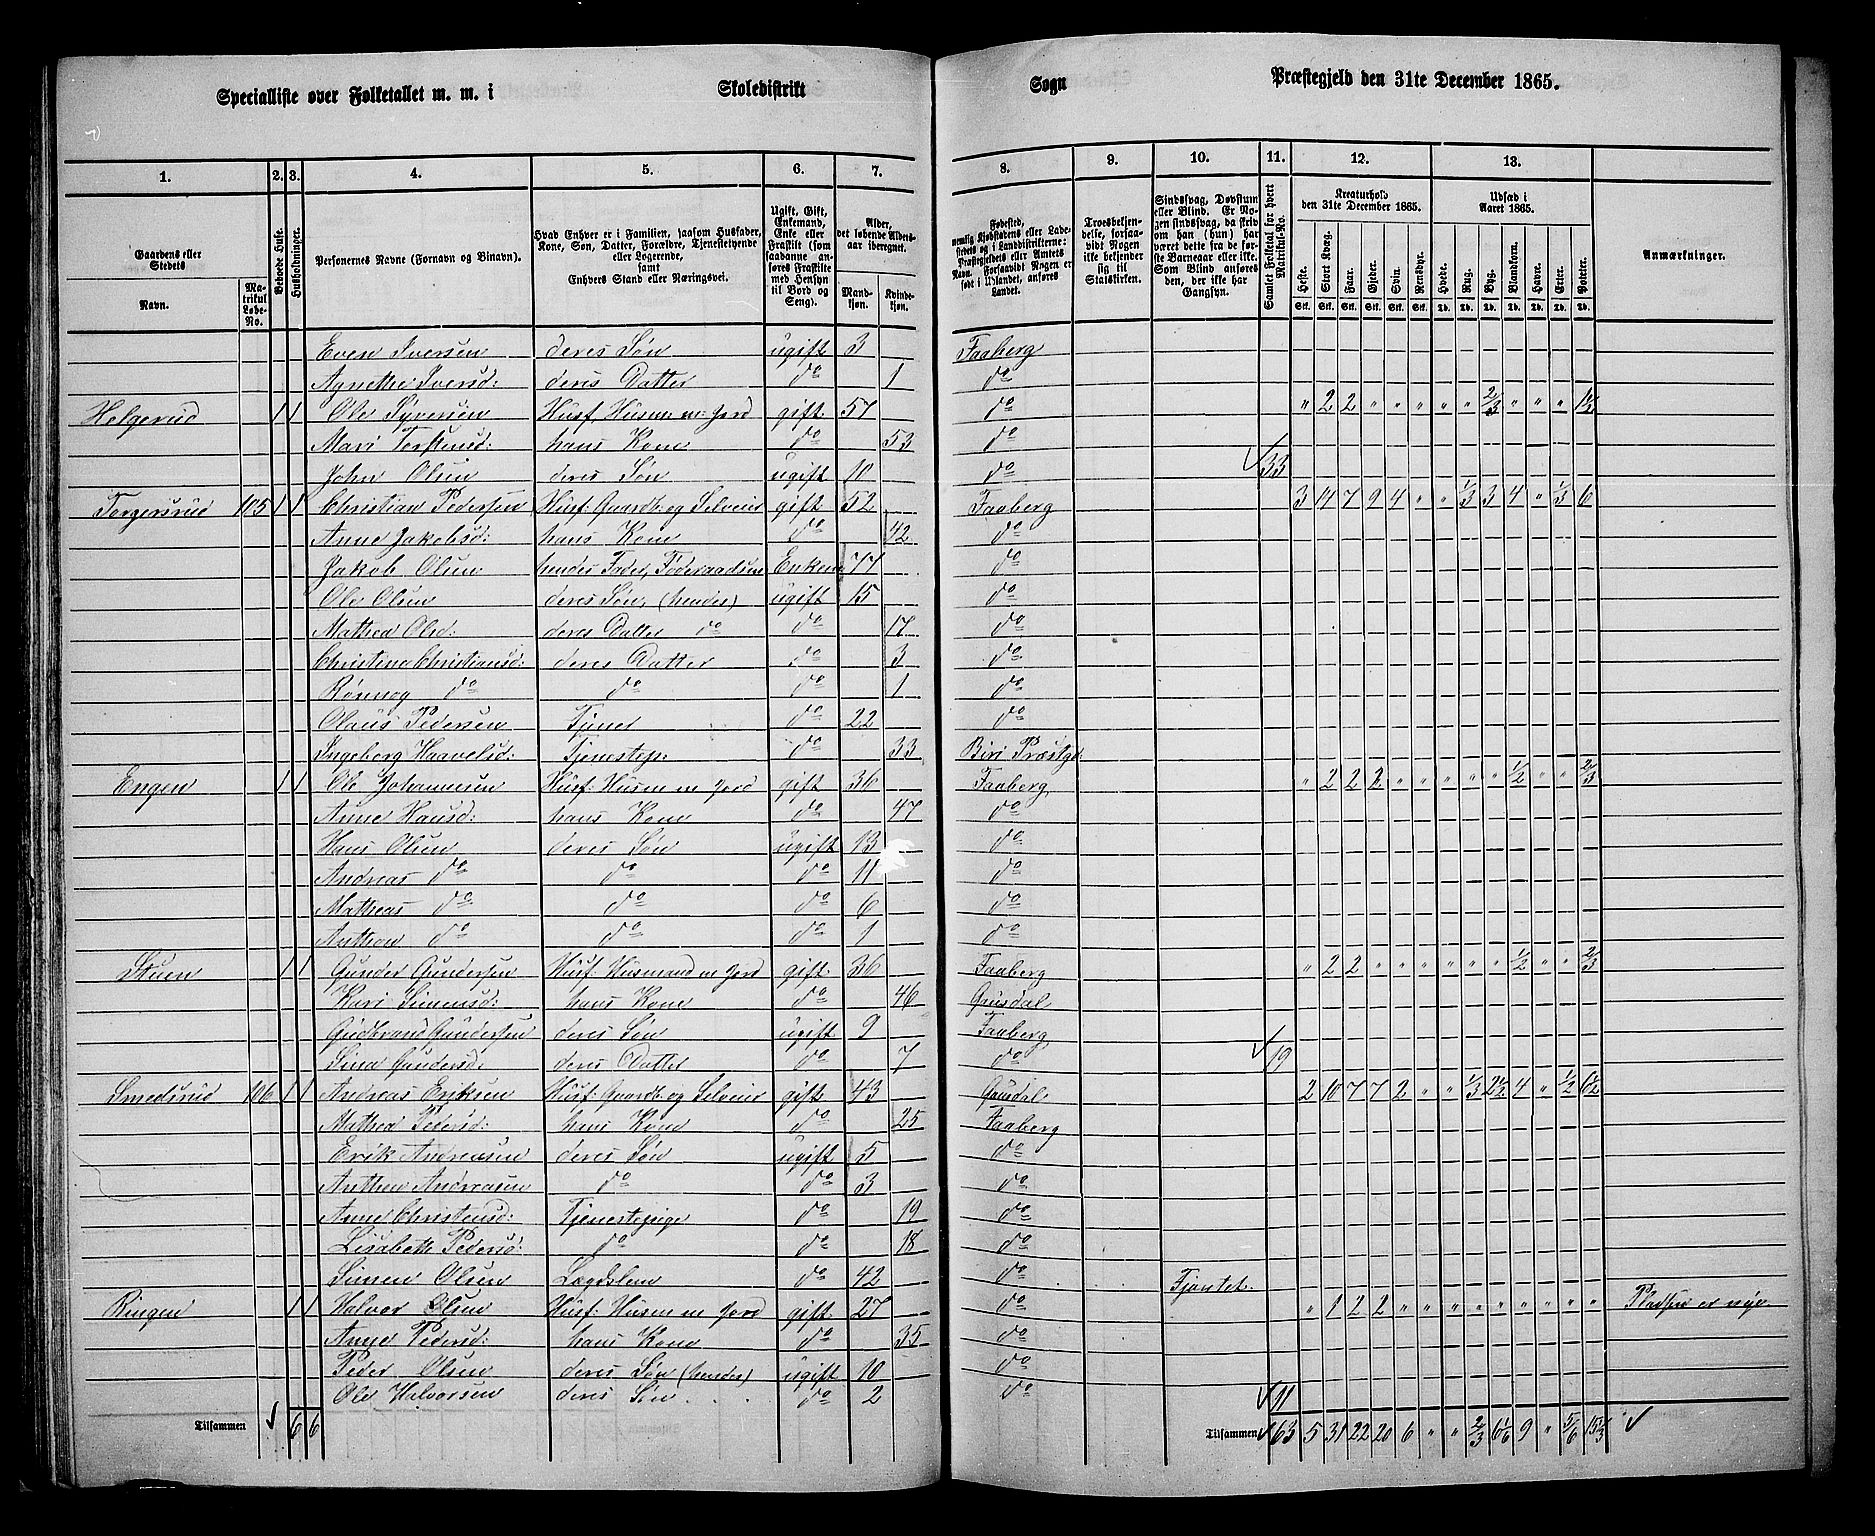 Specialliste over Folketallet m. m. i Skoledistrikt Sogn Præstegjeld den 31te December 1865.
1. 2. 3. 4. 5. 6. 7. 8. 9. 10. 11. 12. 13.
Gaardens eller Stedets
Navn.
Matrikul Løbe-No.
Beboede Huse.
Husholdninger.
Personernes Navne (Fornavn og Binavn).
Hvad Enhver er i Familien, saasom Husfader, Kone, Søn, Datter, Forældre, Tjenestetyende eller Logerende, samt Enhvers Stand eller Næringsvei.
Ugift, Gift, Enkemand, Enke eller Fraskilt (som saadanne anføres Fraskilte med Hensyn til Bord og Seng).
Alder, det løbende Alders-aar iberegnet.
Mandkjøn. Kvindekjøn.
Fødested, nemlig Kjøbstadens eller Ladestedets og i Landdistrikterne: Præstegjeldets eller Amtets Navn. Forsaavidt Nogen er født i Udlandet, anføres Landet.
Troesbekjendelse, forsaavidt Nogen ikke bekjender sig til Statskirken.
Sindssvag, Døvstum eller Blind. Er Nogen sindssvag, da skriv om han (hun) har været dette fra de første Barneaar eller ikke. Som Blind anføres den, der ikke har Gangsyn.
Samlet Folketal for hvert Matrikul-No.
Kreaturhold den 31te December 1865.
Heste. Stort Kvæg. Faar. Gjeder. Svin. Rensdyr.
Udsæd i Aaret 1865.
Hvede. Rug. Byg. Blandkorn. Havre. Erter. Poteter.
Anmærkninger.
Even Iversen deres Søn ugift 3 Faaberg
Agnethe Iversd: deres Datter do 1 do
Helgerud 1 1 Ole Syversen Husf. Husm. m: Jord gift 57 do " 2 2 " " " " " 2/3 " " " 1½
Mari Torstensd: hans Kone do 53 do
John Olsen deres Søn ugift 10 do 33
Torgersrud 105 1 1 Christian Pedersen Husf: Gaardb: og Selveier gift 52 Faaberg 3 14 7 9 4 " " 1/3 3 4 " 1/3 6
Anne Jakobsd: hans Kone do 42 do
Jakob Olsen hendes Fader, Føderaadsm Enkem 77 do
Ole Olsen deres Søn, (hendes) ugift 15 do
Mathea Olsd: deres Datter do do 17 do
Christina Christiansd: deres Datter do 3 do
Rønnog do do do 1 do
Olaus Pedersen Tjener do 22 do
Ingeborg Haavelsd: Tjenestep: do 33 Biri Præstgd.
Engen 1 1 Ole Johannesen Husf: Husm m Jord gift 36 Faaberg " 2 2 2 " " " " " ½ " " 2/3
Anne Hansd: hans Kone do 47 do
Hans Olsen deres Søn ugift 13 do
Andreas do do do 11 do
Matheas do do do 6 do
Anthon do do do 1 do
Stuen 1 1 Gunder Gundersen Husf: Husmand m Jord gift 36 Faaberg " 2 2 " " " " " " ½ " " 2/3
Kari Simensd: hans Kone do 46 Gusdal
Gudbrand Gundersen deres Søn ugift 9 Faaberg
Sina Gundersd: deres Datter do 7 do 19
Smedsrud 106 1 1 Andreas Eriksen Husf: Gaardb og Selveier gift 43 Gusdal 2 10 7 7 2 " " 1/3 2½ 4 " ½ 6½
Mathea Pedersd: hans Kone do 25 Faaberg
Erik Andreasen deres Søn ugift 5 do
Anthon Andreasen do do 3 do
Anne Christensd: Tjenestepige do 19 do
Lisabeth Pedersd: do do 18 do
Simen Olsen Lægdslem do 42 do Fjantet.
Ringen 1 1 Halvor Olsen Husf: Husm m Jord gift 27 do " 1 2 2 " " " " " " " " " Pladsen er nye.
Anne Pedersd: hans Kone do 35 do
Peder Olsen deres Søn (hendes) ugift 10 do
Ole Halvorsen deres Søn do 2 do 11
Tilsammen 6 6 Tilsammen 63 5 31 22 20 6 " " 2/3 6 1/6 9 " 5/6 15 1/3